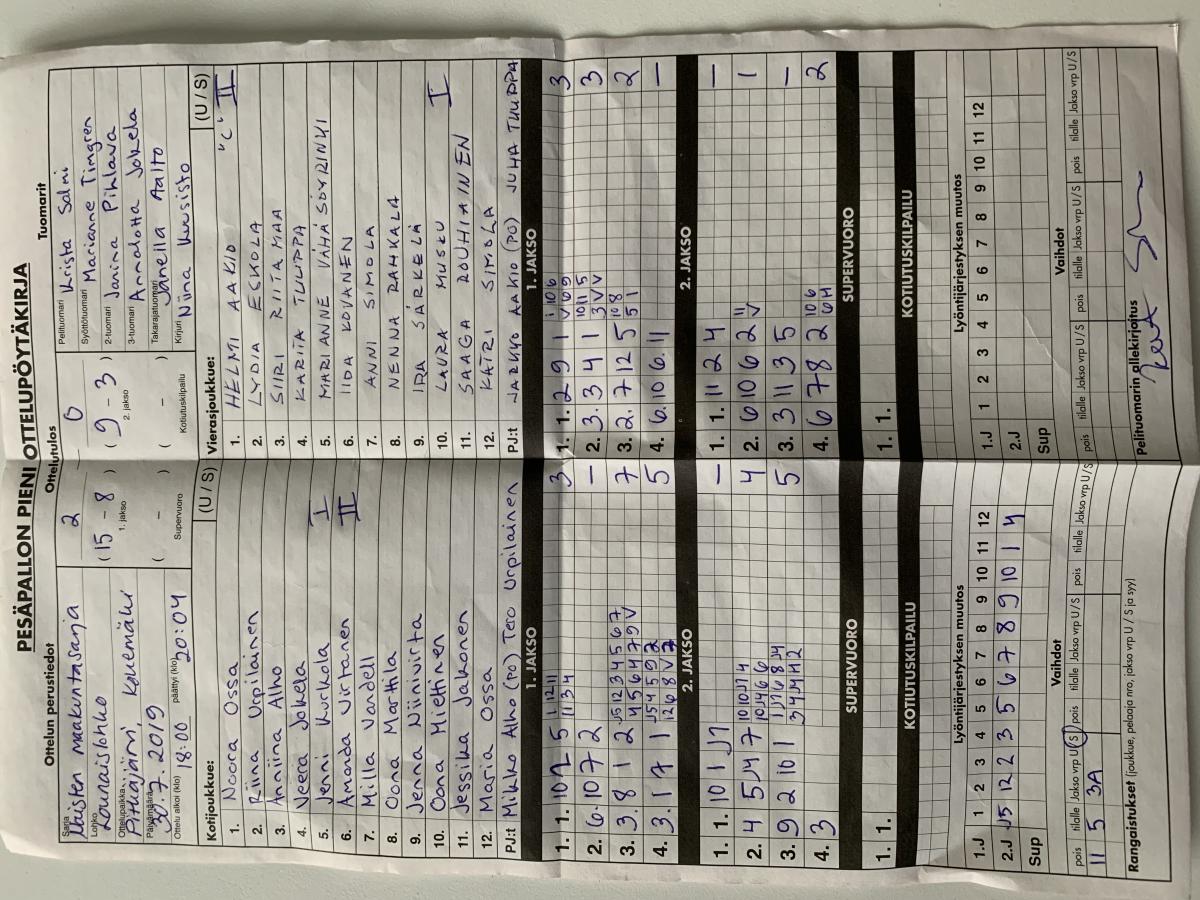 PESÄPALLON PIENI OTTELUPÖYTÄKIRJA
Ottelun perustiedot
Sarja
Naisten maakuntasarja
Lohko
Lounaislohko
Ottelupaikka
Pitkäjärvi, Kouemäki
Päivämäärä
30.7.2019
Ottelu alkoi (klo) 18:00 päättyi (klo) 20:04
Ottelutulos
2 – 0
(15 – 8) (9 – 3)
1. jakso 2. jakso
( – ) ( – )
Supervuoro Kotiutuskilpailu
Tuomarit
Pelituomari Krista Salmi
Syöttötuomari Marianne Timgren
2-tuomari Janina Pihlava
3-tuomari Annalotta Jokela
Takarajatuomari Janella Aalto
Kirjuri Niina Kuusisto
Kotijoukkue: (U / S)
1. Noora Ossa
2. Riina Urpilainen
3. Anniina Alho
4. Veera Jokela
5. Jenni Kurkola I
6. Amanda Virtanen II
7. Milla Vandell
8. Oona Marttila
9. Jenna Niinivirta
10. Oona Miettinen
11. Jessika Jakonen
12. Maria Ossa
PJ:t Mikko Alho (PO) Tero Urpilainen
Vierasjoukkue: (U / S)
1. HELMI AAKIO "C" II
2. LYDIA ESKOLA
3. SIIRI RIITAMAA
4. KARITA TULIPPA
5. MARIANNE VÄHÄ SÖYRINKI
6. IIDA KOVANEN
7. ANNI SIMOLA
8. NENNA RAHKALA
9. IRA SÄRKELÄ
10. LAURA MUSKU I
11. SAAGA ROUHIAINEN
12. KATRI SIMOLA
PJ:t JARKKO AAKIO (PO) JUHA TUUPPA
1. JAKSO
1. 1. 10 2 5 3
2. 6. 10 7 2 –
3. 3. 8 1 2 7
4. 3. 1 7 1 5
1. JAKSO
1. 1. 2 9 1 3
2. 3. 3 4 1 3
3. 2. 7 12 5 2
4. 6. 10 6. 11 –
2. JAKSO
1. 1. 10 1 J7 –
2. 4 5 J4 7 4
3. 9 2 10 1 5
4. 3
2. JAKSO
1. 1. 11 2 4 –
2. 6 10 6 2 1
3. 3 11 3 5 –
4. 6 7 8 2 2
SUPERVUORO
1. 1.
SUPERVUORO
1. 1.
KOTIUTUSKILPAILU
KOTIUTUSKILPAILU
Lyöntijärjestyksen muutos
1 2 3 4 5 6 7 8 9 10 11 12
1.J
2.J J5 12 2 3 5 6 7 8 9 10 1 4
Sup
Lyöntijärjestyksen muutos
1 2 3 4 5 6 7 8 9 10 11 12
1.J
2.J
Sup
Vaihdot
pois tilalle Jakso vrp U/S pois tilalle Jakso vrp U/S pois tilalle Jakso vrp U/S
11 5 3A
Vaihdot
pois tilalle Jakso vrp U/S pois tilalle Jakso vrp U/S pois tilalle Jakso vrp U/S
Rangaistukset (joukkue, pelaaja nro, jakso vrp U/S ja syy)
Pelituomarin allekirjoitus